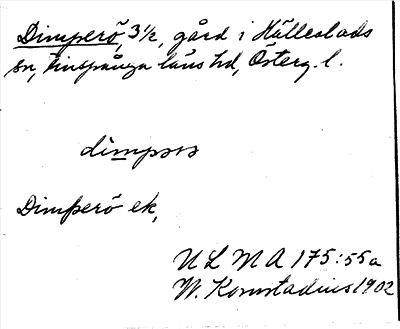 Dimperö, 3 1/2, gård i Hällestads
sn, Finspånga läns hd, Österg. l.
dimpɜɜ
Dimperö ek,
ULMA 175:55a
W. Kornstadius 1902